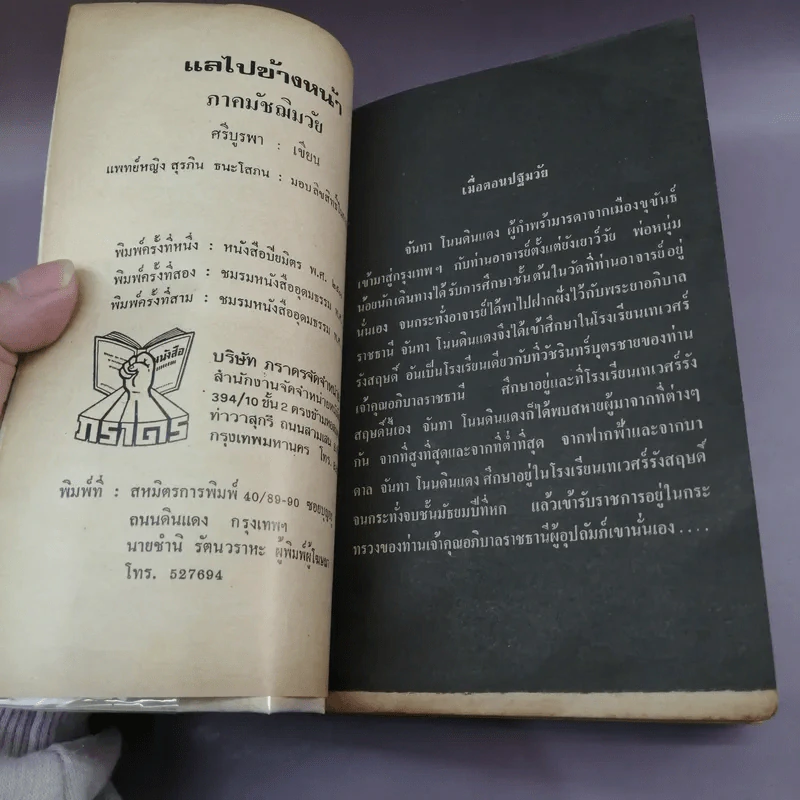 แลไปข้างหน้า
ภาคมัชฌิมวัย
ศรีบูรพา : เขียน
แพทย์หญิง สุรภิน ธนะโสภณ : มอบลิขสิทธิ์
พิมพ์ครั้งที่หนึ่ง : หนังสือปิยมิตร พ.ศ.
พิมพ์ครั้งที่สอง : ชมรมหนังสืออุดมธรรม
พิมพ์ครั้งที่สาม : ชมรมหนังสืออุดมธรรม
หนังสือ
ภราดร
บริษัท ภราดรจัดจำหน่าย
สำนักงานจัดจำหน่าย
394/10 ชั้น 2 ตรงข้าม
ท่าวาสุกรี ถนนสามเสน
กรุงเทพมหานคร โทร.
พิมพ์ที่ : สหมิตรการพิมพ์ 40/89-90 ซอยบุญอยู่
ถนนดินแดง กรุงเทพฯ
นายชำนิ รัตนวราหะ ผู้พิมพ์ผู้โฆษณา
โทร. 527694
เมื่อตอนปฐมวัย
จันทา โนนดินแดง ผู้กำพร้ามารดาจากเมืองขุขันธ์
เข้ามาสู่กรุงเทพฯ กับท่านอาจารย์ตั้งแต่ยังเยาว์วัย พ่อหนุ่ม
น้อยนักเดินทางได้รับการศึกษาชั้นต้นในวัดที่ท่านอาจารย์อยู่
นั่นเอง จนกระทั่งอาจารย์ได้พาไปฝากฝังไว้กับพระยาอภิบาล
ราชธานี จันทา โนนดินแดงจึงได้เข้าศึกษาในโรงเรียนเทเวศร์
รังสฤษดิ์ อันเป็นโรงเรียนเดียวกับที่วัชรินทร์บุตรชายของท่าน
เจ้าคุณอภิบาลราชธานี ศึกษาอยู่และที่โรงเรียนเทเวศร์รัง
สฤษดิ์นี้เอง จันทา โนนดินแดงก็ได้พบสหายผู้มาจากที่ต่างๆ
กัน จากที่สูงที่สุดและจากที่ต่ำที่สุด จากฟากฟ้าและจากบา
ดาล จันทา โนนดินแดง ศึกษาอยู่ในโรงเรียนเทเวศร์รังสฤษดิ์
จนกระทั่งจบชั้นมัธยมปีที่หก แล้วเข้ารับราชการอยู่ในกระ
ทรวงของท่านเจ้าคุณอภิบาลราชธานีผู้อุปถัมภ์เขานั่นเอง....